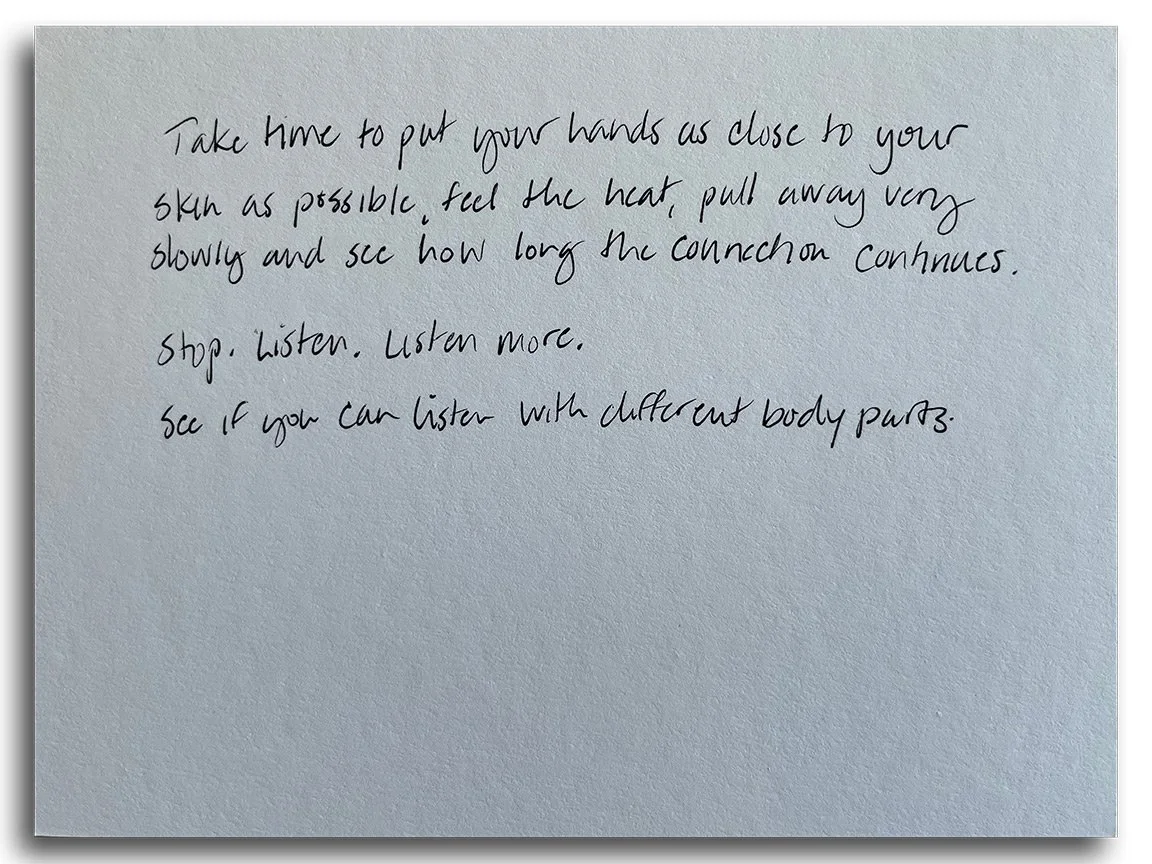 Take time to put your hands as close to your
skin as possible, feel the heat, pull away very
slowly and see how long the connection continues.
Stop. Listen. Listen more.
See if you can listen with different body parts.